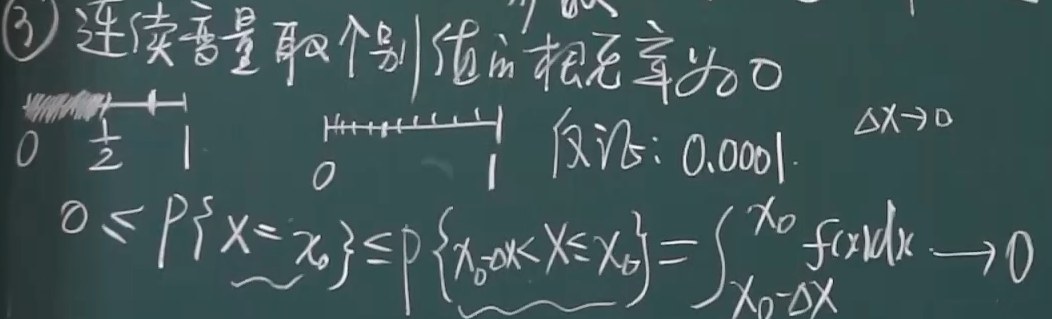 ③ 连续变量取个别值的概率为0
0 1/2 1
0 1 反证: 0.0001. Δx→0
0 ≤ P{X = x₀} ≤ P{x₀-Δx < X ≤ x₀} = ∫_{x₀-Δx}^{x₀} f(x)dx → 0